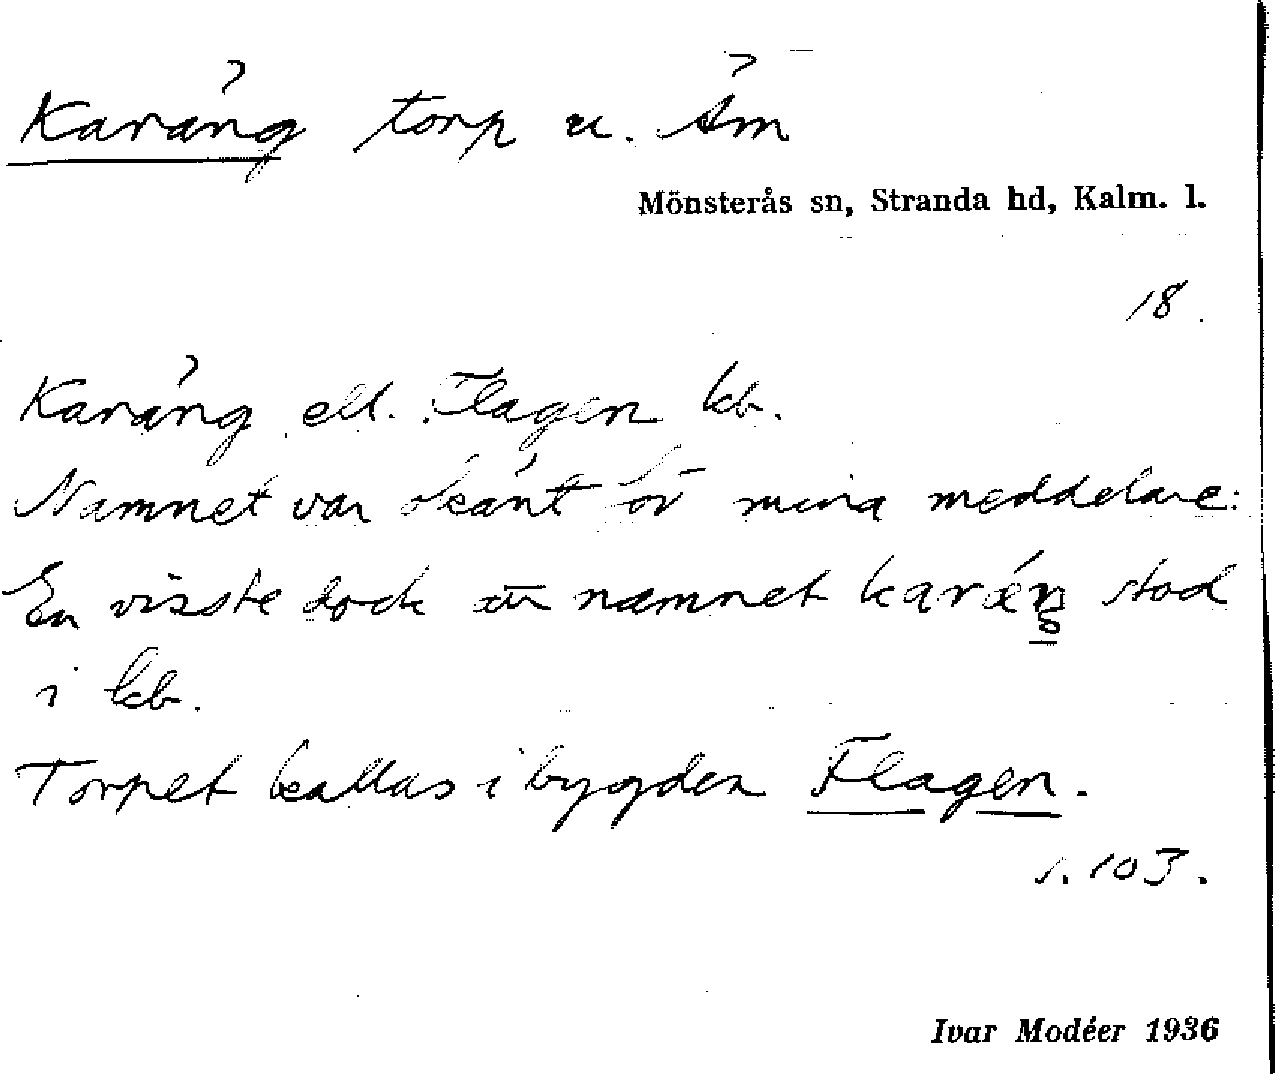 Karäng torp u. Äm
Mönsterås sn, Stranda hd, Kalm. l.
18.
Karäng ell. Flagen kb.
Namnet var okänt för mina meddelare:
En visste dock att namnet karǽŋ stod
i kb.
Torpet kallas i bygden Flagen.
s. 103.
Ivar Modéer 1936